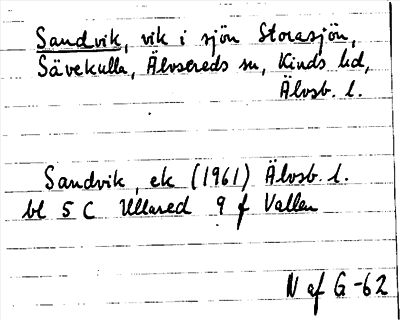 Sandvik, vik i sjön Storasjön,
Sävekulla, Älvsereds sn, Kinds hd,
Älvsb. l.
Sandvik, ek (1961) Älvsb. l.
bl 5 C Ullared 9 f Vallen
N af G -62